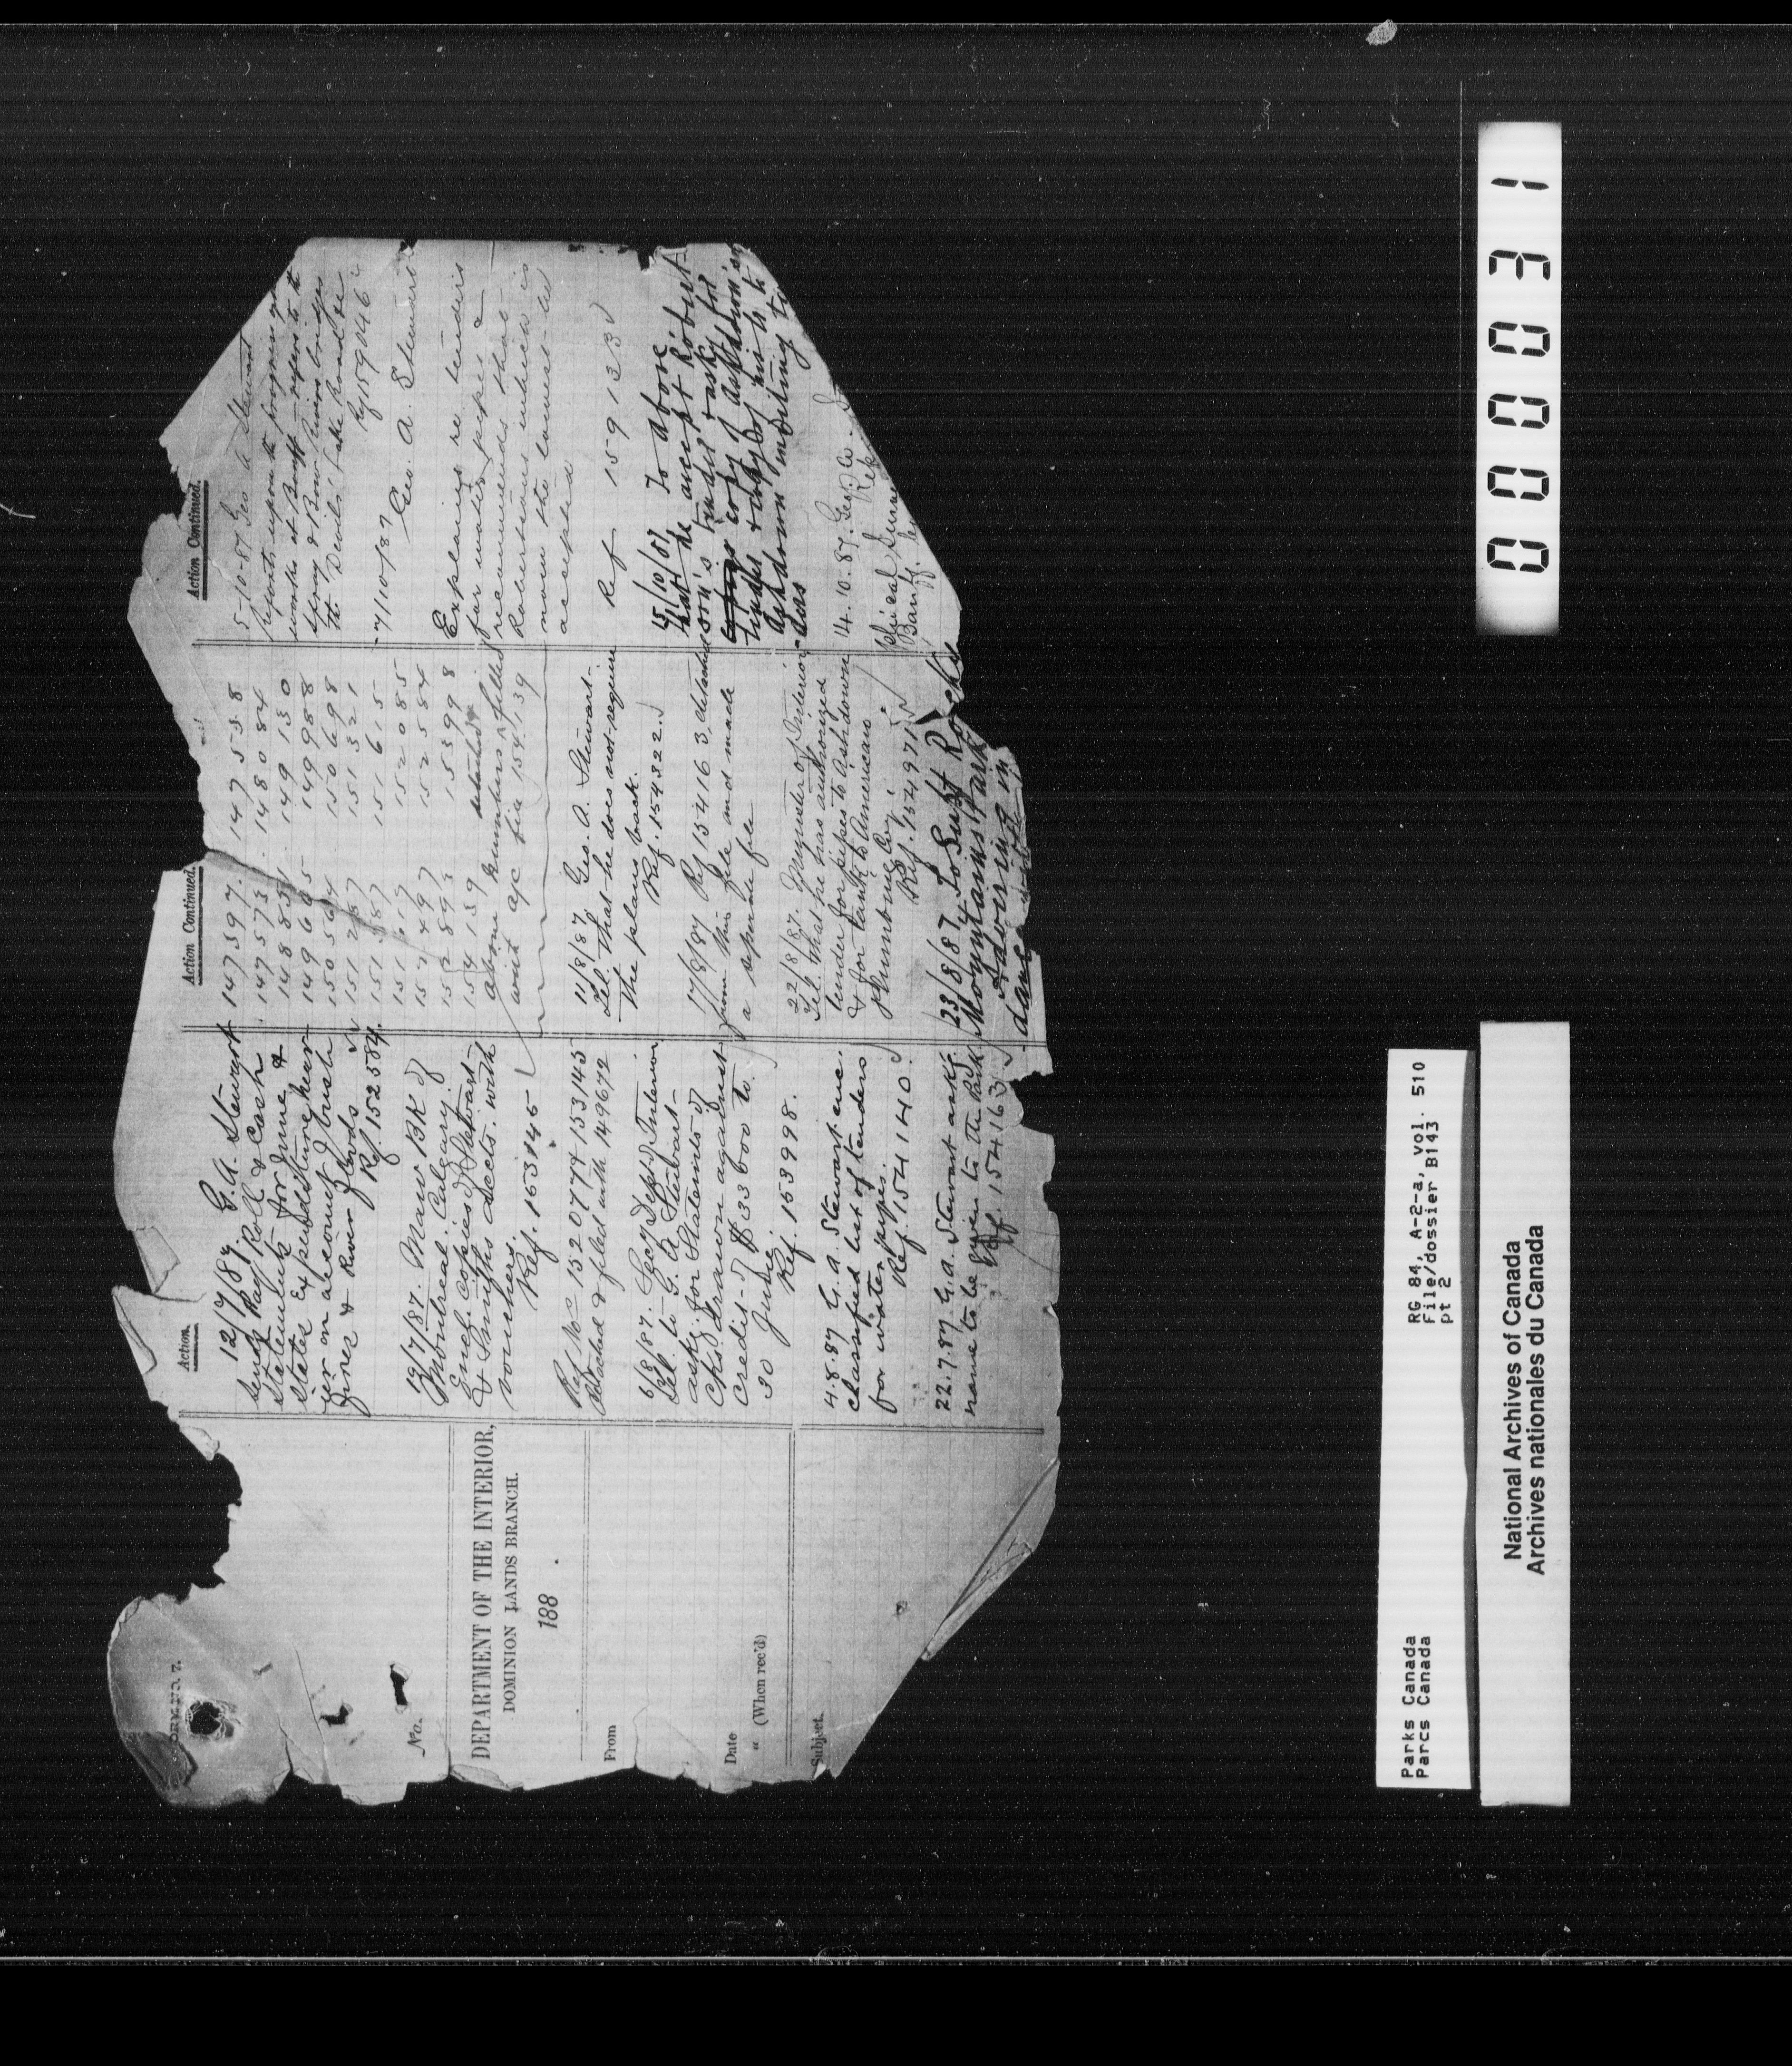 FORM NO. 7.
No.
DEPARTMENT OF THE INTERIOR,
DOMINION LANDS BRANCH.
188 .
From
Date
" (When rec'd)
Subject.
Action.
12/7/87. G. A. Stewart
sends Pay Roll & Cash
Statements for June &
states expenditure heav-
ier on account of bush
fires & River floods
Ref. 152584.
19/7/87. Manr BK of
Montreal. Calgary.
Encl. copies of Stewart
& Smiths accts. with
vouchers.
Ref. 153145
Ref Nos 152077 & 153145
attached & filed with 149672
6/8/87. Secy Dept Interior
tel. to G. A. Stewart
askg. for Statements of
chs drawn against
credit of $33000 to
30 June.
Ref. 153998.
4.8.87 G. A. Stewart enc.
classified list of tenders
for water pipes.
Ref. 154140.
22.7.87. G. A. Stewart askg.
name to be given to the Park
Ref. 154163
Action Continued.
147397. 147538
147573. 148084
148831. 149130
149605. 149988
150564 150698
151287 151321
151587 151615
151617 152085
152497 152584
152893 153998
154139 attached
above numbers filled
with a/c file 154139
11/8/87 Geo. A. Stewart
Tel. that he does not require
the plans back.
Ref. 154322.
17/8/87 Ref 154163 detached
from this file and made
a seperate file
22/8/87. Minister of Interior
Tel. that he has authorized
tender for pipes to Ashdown
& for tank to Americans
Plumbing Coy.
Ref. 154971
23/8/87. To Supt Rocky
Mountains Park
Advising in
Action Continued.
5-10-87 Geo A Stewart
Reports upon the progress of
works at Banff - refers to the
Spray & Bow Rivers bridges
the Devils' Lake Road etc
Rf 159046
7/10/87
Geo. A. Stewart
Explains re tenders
for water pipes &
recommends that
Robertsons which is
now the lowest be
accepted
Ref 159133
15/10/87 To above
that he accept Robert-
son's tender & asks for
copy of Ashdown's
tender & copy of his to
Ashdown inviting ten-
ders
14.10.87. Geo.
Banff.
00031
Parks Canada
Parcs Canada
RG 84, A-2-a, vol. 510
File/dossier B143
pt 2
National Archives of Canada
Archives nationales du Canada